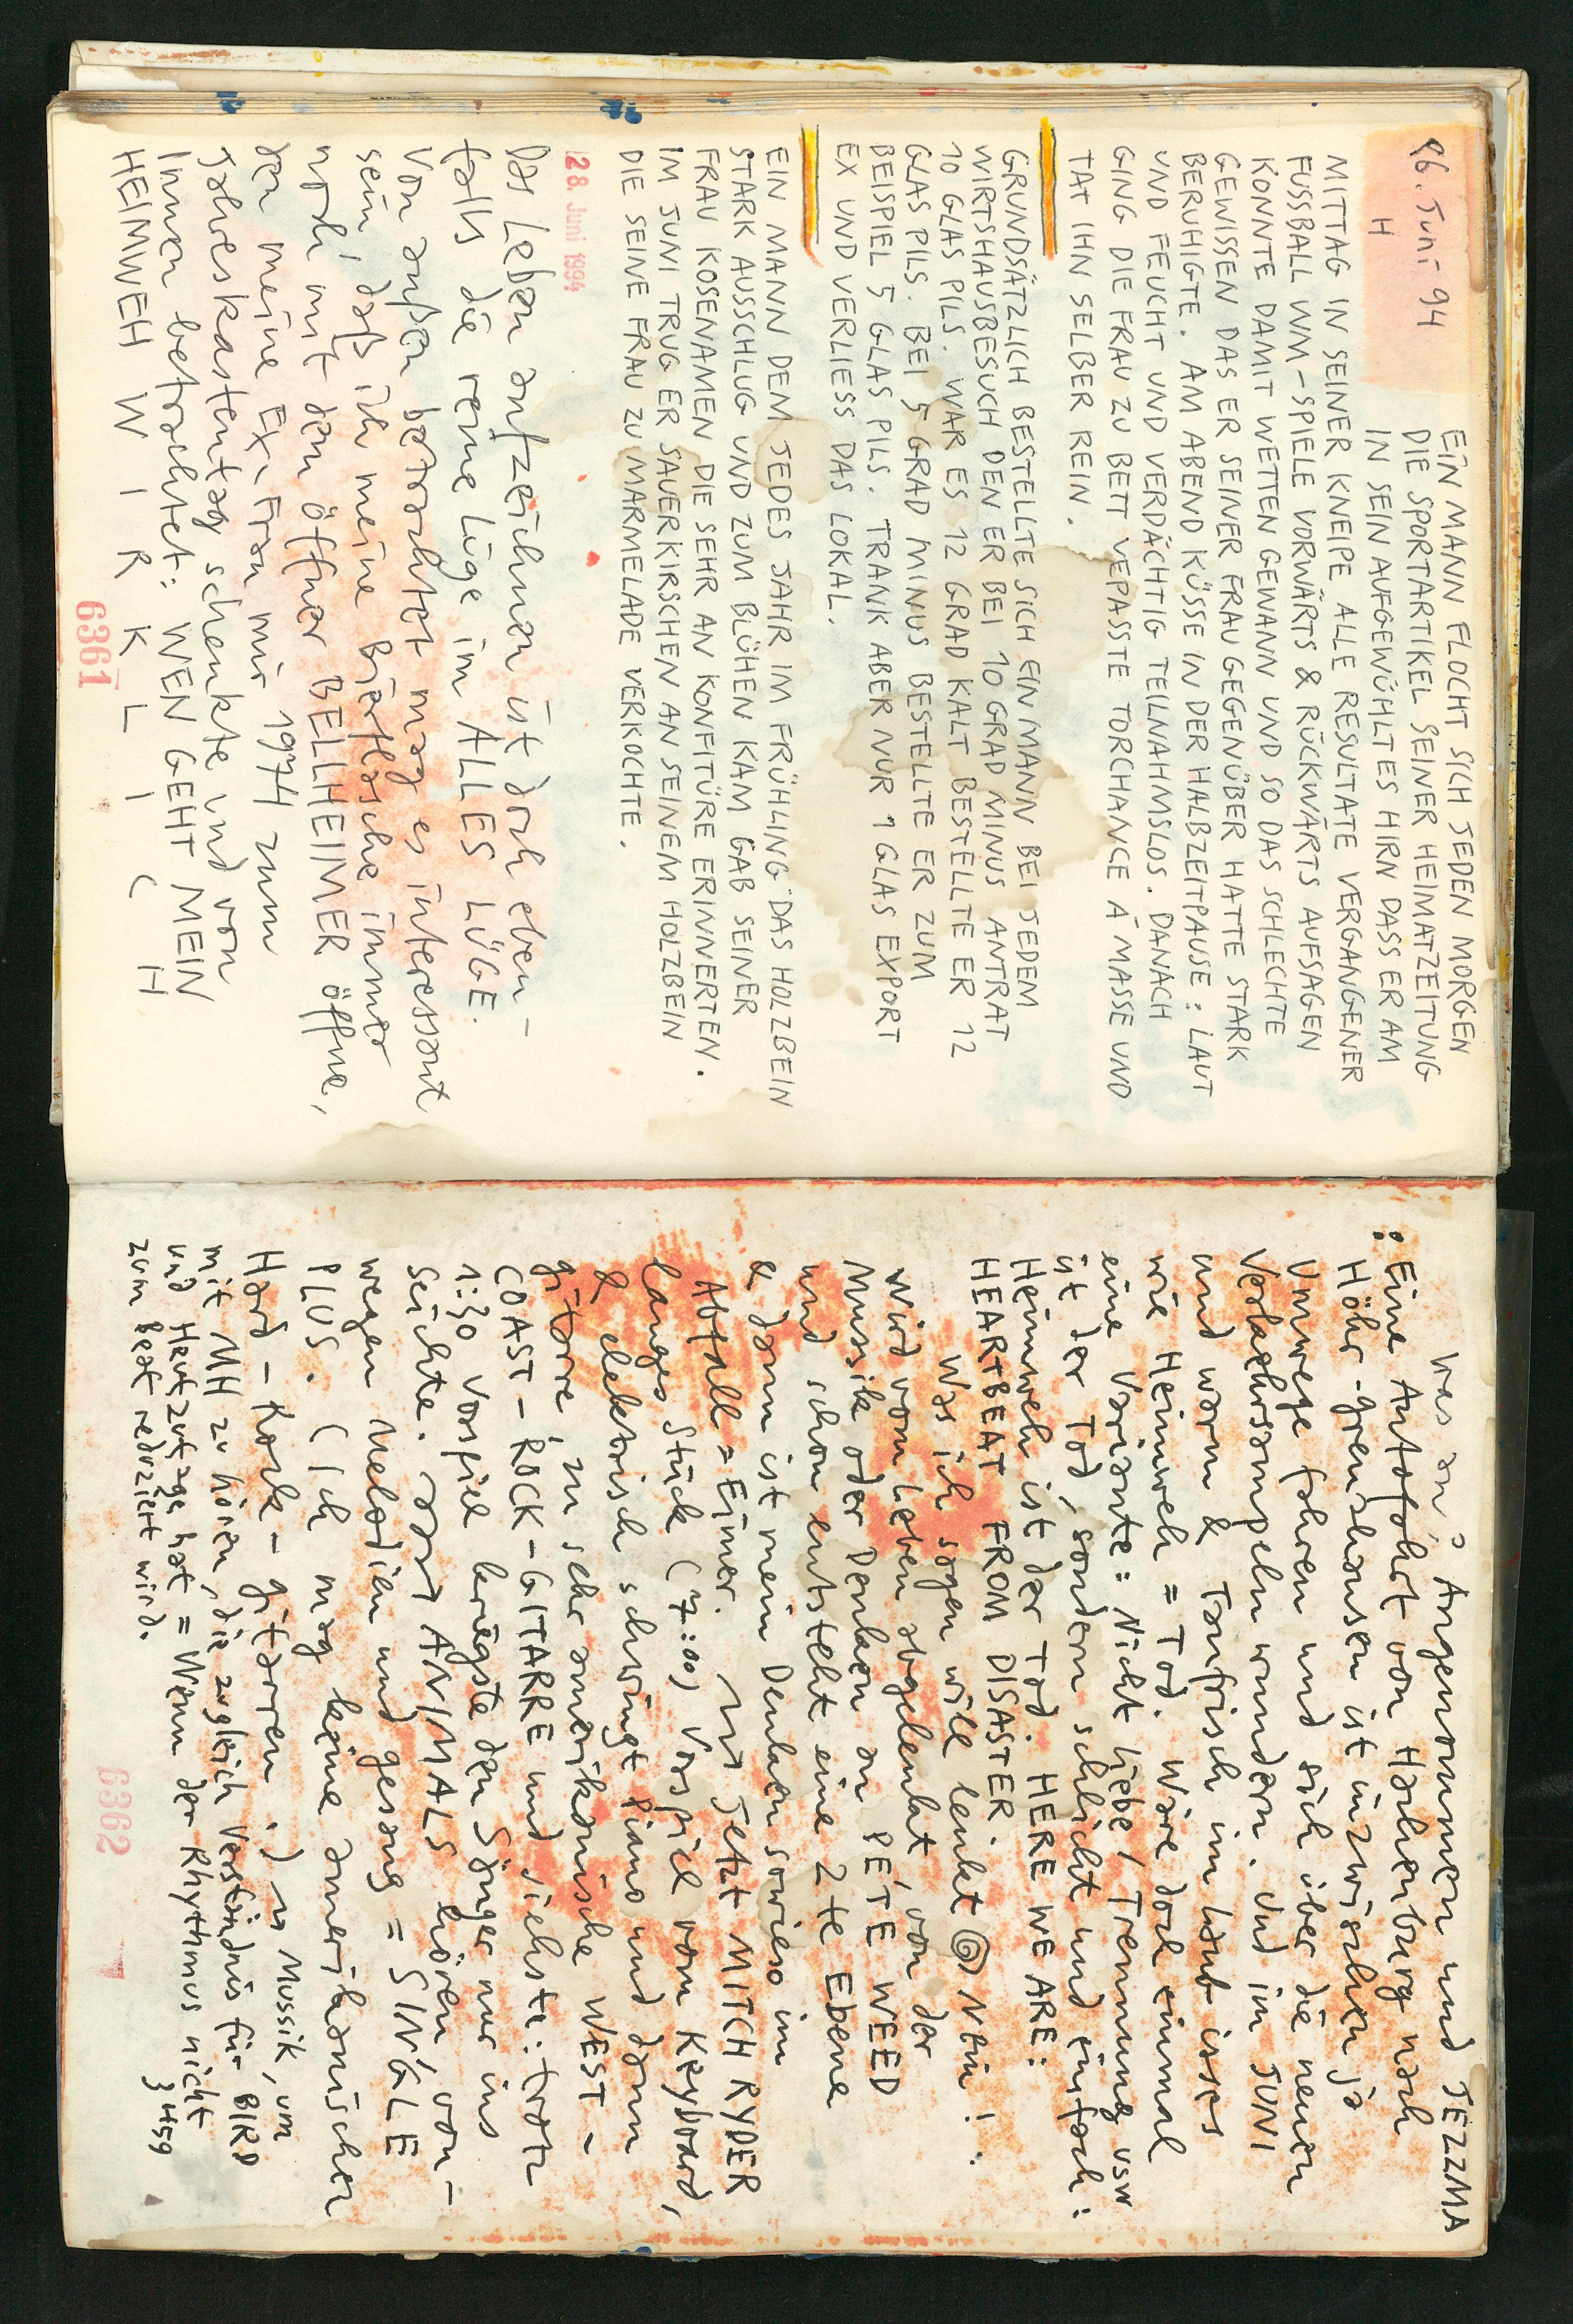 26. Juni 94
H
EIN MANN FLOCHT SICH JEDEN MORGEN
DIE SPORTARTIKEL SEINER HEIMATZEITUNG
IN SEIN AUFGEWÜHLTES HIRN DASS ER AM
MITTAG IN SEINER KNEIPE ALLE RESULTATE VERGANGENER
FUSSBALL WM-SPIELE VORWÄRTS & RÜCKWÄRTS AUFSAGEN
KONNTE DAMIT WETTEN GEWANN UND SO DAS SCHLECHTE
GEWISSEN DAS ER SEINER FRAU GEGENÜBER HATTE STARK
BERUHIGTE. AM ABEND KÜSSE IN DER HALBZEITPAUSE: LAUT
UND FEUCHT UND VERDÄCHTIG TEILNAHMSLOS. DANACH
GING DIE FRAU ZU BETT VEPASSTE TORCHANCE Á MASSE UND
TAT IHN SELBER REIN.
GRUNDSÄTZLICH BESTELLTE SICH EIN MANN BEI JEDEM
WIRTSHAUSBESUCH DEN ER BEI 10 GRAD MINUS ANTRAT
10 GLAS PILS. WAR ES 12 GRAD KALT BESTELLTE ER 12
GLAS PILS. BEI 5 GRAD MINUS BESTELLTE ER ZUM
BEISPIEL 5 GLAS PILS. TRANK ABER NUR 1 GLAS EXPORT
EX UND VERLIESS DAS LOKAL.
EIN MANN DEM JEDES JAHR IM FRÜHLING DAS HOLZBEIN
STARK AUSSCHLUG UND ZUM BLÜHEN KAM GAB SEINER
FRAU KOSENAMEN DIE SEHR AN KONFITÜRE ERINNERTEN.
IM JUNI TRUG ER SAUERKIRSCHEN AN SEINEM HOLZBEIN
DIE SEINE FRAU ZU MARMELADE VERKOCHTE.
28. Juni 1994
Das Leben aufzeichnen ist doch eben-
falls die reine Lüge im ALLES LÜGE.
Von außen betrachtet mag es interessant
sein, daß ich meine Bierflasche immer
noch mit dem Öffner BELLHEIMER öffne,
den meine Ex-Frau mir 1974 zum
Jahreskastentag schenkte und von
Innen betrachtet: WEN GEHT MEIN
HEIMWEH W I R K L I C H
6361
was an? Angenommen und JEZZMA
: Eine Autofahrt von Hachenburg nach
Höhr-grenzhausen ist inzwischen ja
Umwege fahren und sich über die neuen
Verkehrsampeln wundern. Und im JUNI
und warm & Taufrisch im Laub isses
wie Heimweh = Tod. Wäre doch einmal
eine Variante: Nicht Liebe / Trennung usw
ist der Tod, sondern schlicht und einfach:
Heimweh ist der Tod. HERE WE ARE:
HEARTBEAT FROM DISASTER.
Was ich sagen will lenkt @ Nein!:
Wird vom Leben abgelenkt, von der
Mussik oder Denken an PETE WEED
und schon entsteht eine 2te Ebene
& dann ist mein Denken sowieso im
Abfall = Eimer. Jetzt MITCH RYDER
langes Stück (7:00) Vorspiel vom Keyboard,
& elektrisch schwingt Piano und dann
gitarre, zu sehr amerikanische WEST-
COAST-ROCK-GITARRE und siehste: trotz
1:30 Vorspiel kriegste den Sänger nur ins
Seichte. Darf ANIMALS hören, von-
wegen Melodien und gesang = SINGLE
PLUS. (Ich mag keine amerikanischen
Hard-Rock-gitarren.) Mussik, um
mit MH zu hören, die zugleich Verständnis für BIRD
und Heutzutage hat = Wenn der Rhythmus nicht
zum Beat reduziert wird.
3459
6362